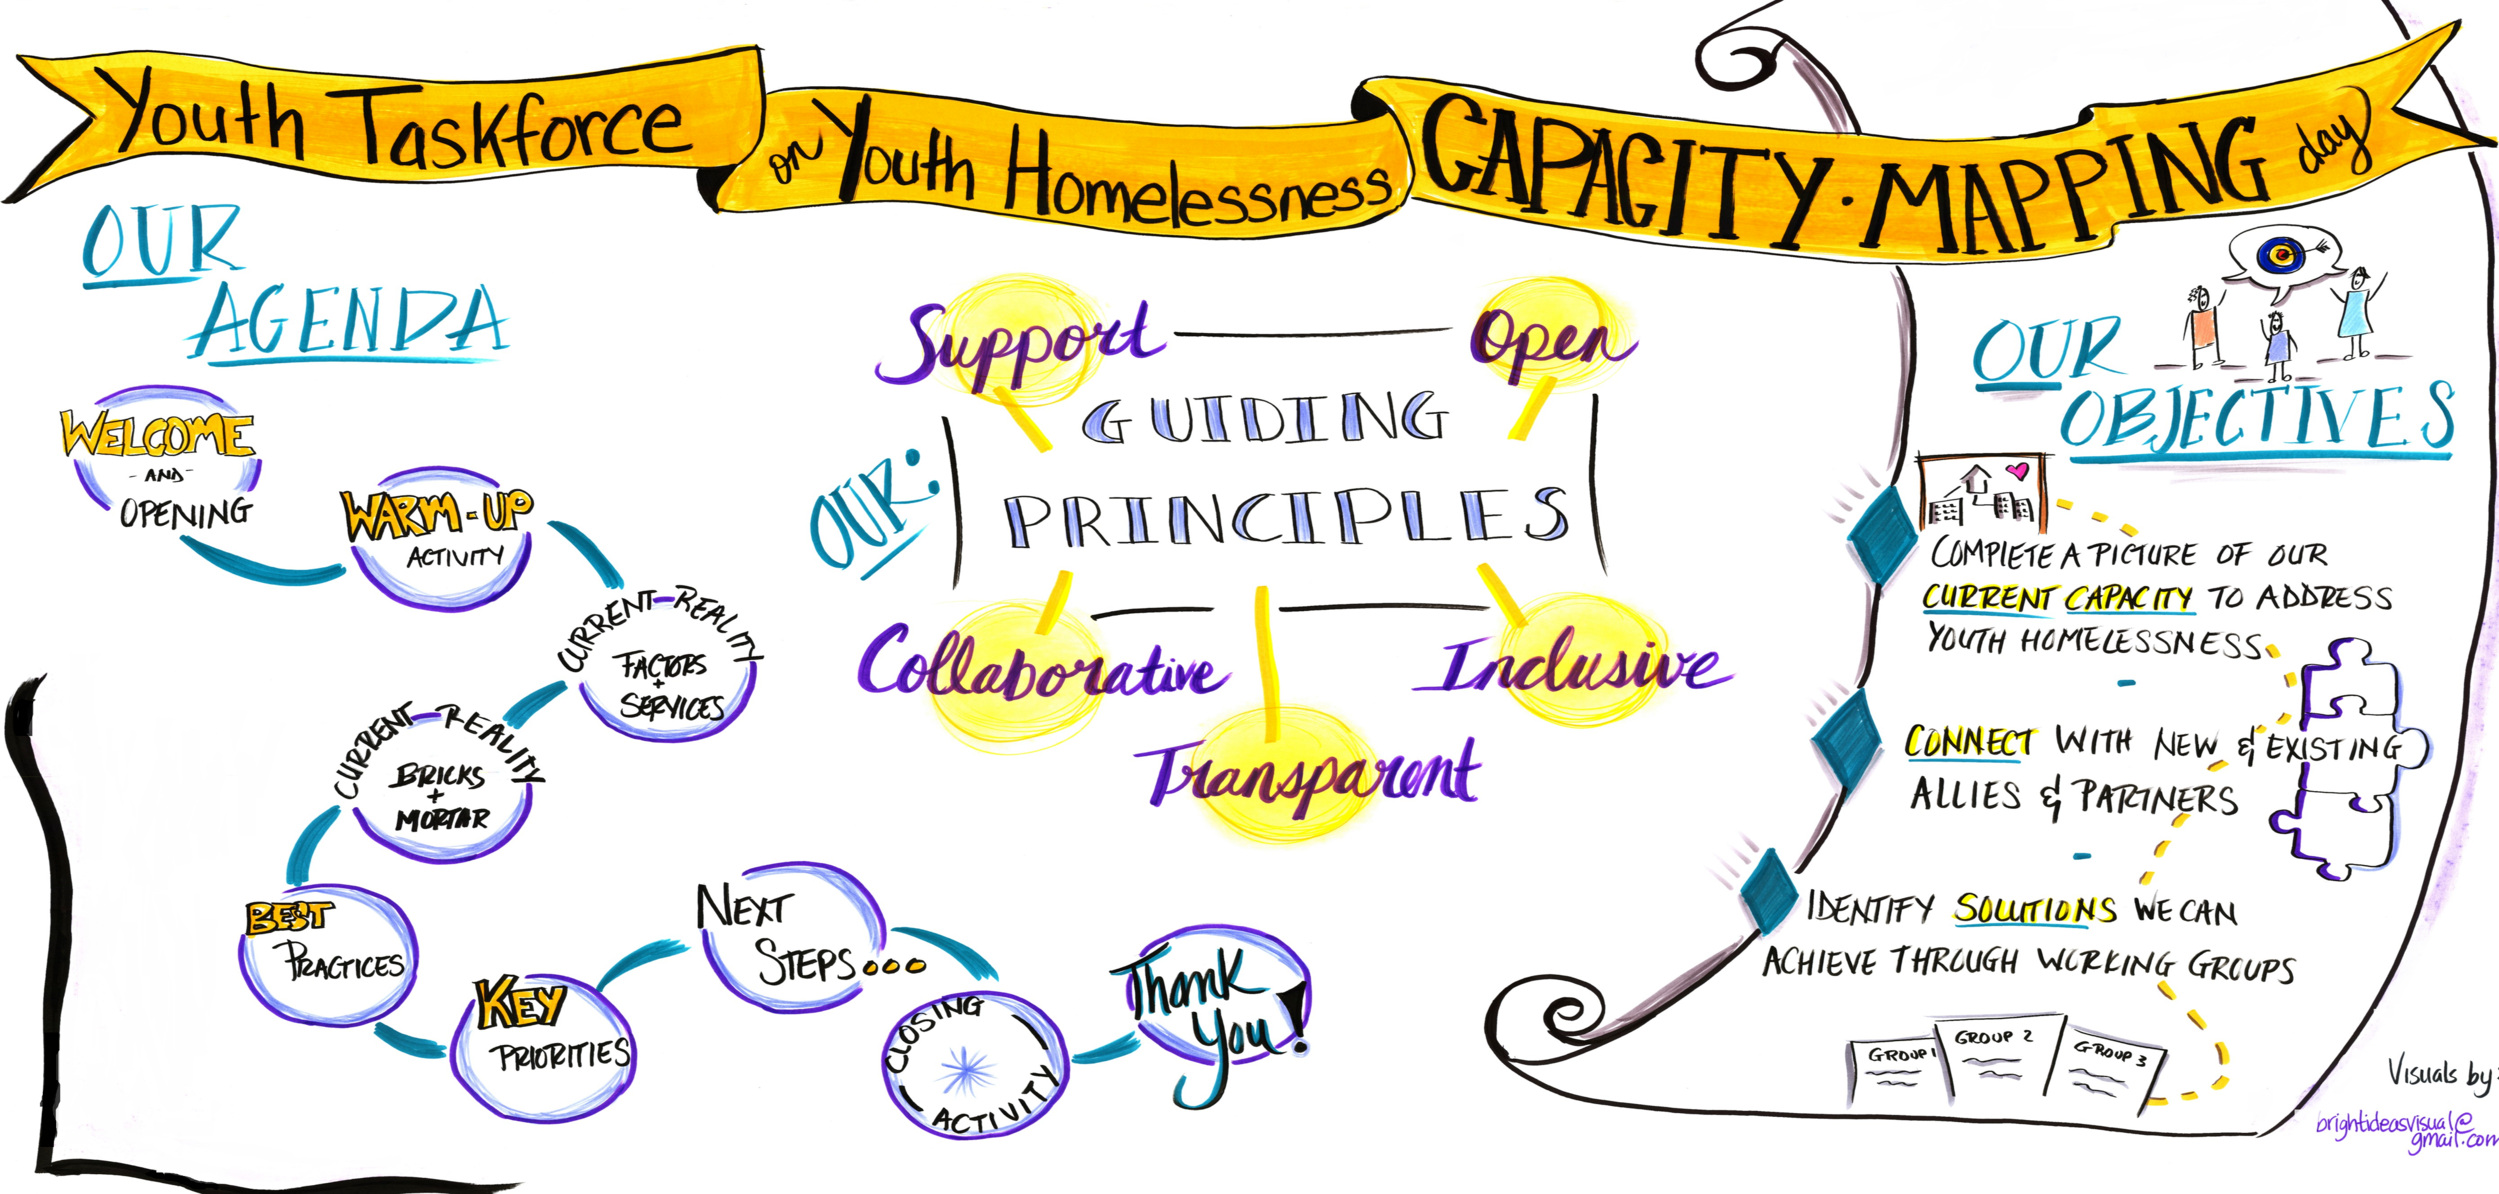 Youth Taskforce
on Youth Homelessness
CAPACITY · MAPPING day
OUR
AGENDA
WELCOME
- AND -
OPENING
WARM-UP
ACTIVITY
CURRENT REALITY
FACTORS
+
SERVICES
CURRENT REALITY
BRICKS
+
MORTAR
BEST
PRACTICES
KEY
PRIORITIES
NEXT
STEPS...
CLOSING
ACTIVITY
Thank
You!
OUR:
GUIDING
PRINCIPLES
Support
Open
Collaborative
Inclusive
Transparent
OUR
OBJECTIVES
COMPLETE A PICTURE OF OUR
CURRENT CAPACITY TO ADDRESS
YOUTH HOMELESSNESS
CONNECT WITH NEW & EXISTING
ALLIES & PARTNERS
IDENTIFY SOLUTIONS WE CAN
ACHIEVE THROUGH WORKING GROUPS
GROUP 1
GROUP 2
GROUP 3
Visuals by:
brightideasvisual@
gmail.com